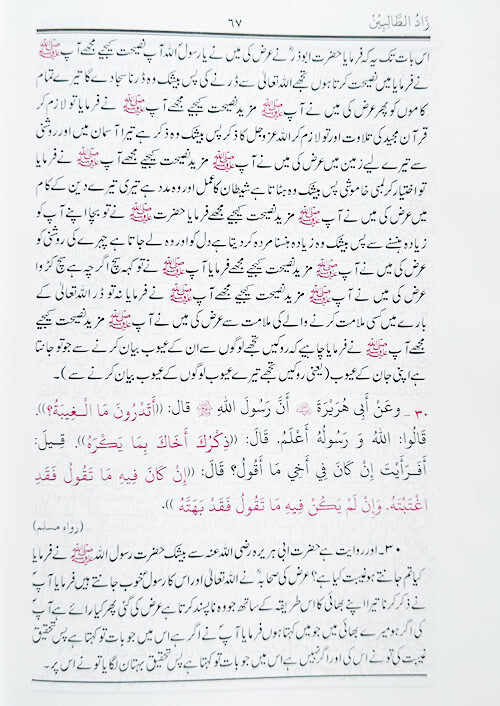 زَادُ الطَّالِبِيْنَ
٦٧
اس بات تک یہ کہ فرمایا حضرت ابوذرؓ نے عرض کی میں نے یا رسول اللہ آپ نصیحت کیجیے مجھے آپ ﷺ
نے فرمایا میں نصیحت کرتا ہوں تجھے اللہ تعالیٰ سے ڈرنے کی پس بیشک وہ ڈرنا سجا دے گا تیرے تمام
کاموں کو پھر عرض کی میں نے آپ ﷺ مزید نصیحت کیجیے مجھے آپ ﷺ نے فرمایا تو لازم کر
قرآن مجید کی تلاوت اور تو لازم کر اللہ عزوجل کا ذکر پس بیشک وہ ذکر ہے تیرا آسمان میں اور روشنی
سے تیرے لیے زمین میں عرض کی میں نے آپ ﷺ مزید نصیحت کیجیے مجھے آپ ﷺ نے فرمایا
تو اختیار کر لمبی خاموشی پس بیشک وہ ہٹاتا ہے شیطان کا عمل اور وہ مدد ہے تیری تیرے دین کے کام
میں عرض کی میں نے آپ ﷺ مزید نصیحت کیجیے مجھے فرمایا حضرت ﷺ نے تو بچا اپنے آپ کو
زیادہ ہنسنے سے پس بیشک وہ زیادہ ہنسنا مردہ کر دیتا ہے دل کو اور وہ لے جاتا ہے چہرے کی روشنی کو
عرض کی میں نے آپ ﷺ مزید نصیحت کیجیے مجھے فرمایا آپ ﷺ نے تو کہہ سچ اگرچہ ہے سچ کڑوا
عرض کی میں نے آپ ﷺ مزید نصیحت کیجیے مجھے آپ ﷺ نے فرمایا نہ تو ڈر اللہ تعالیٰ کے
بارے میں کسی ملامت کرنے والے کی ملامت سے عرض کی میں نے آپ ﷺ مزید نصیحت کیجیے
مجھے آپ ﷺ نے فرمایا چاہیے کہ روکیں تجھے لوگوں سے ان کے عیوب بیان کرنے سے جو تو جانتا
ہے اپنی جان کے عیوب (یعنی روکیں تجھے تیرے عیوب لوگوں کے عیوب بیان کرنے سے)۔
٣٠۔ وعَنْ أَبِي هُرَيْرَةَ ﷺ أَنَّ رَسُولَ اللهِ ﷺ قال: ((أَتَدْرُونَ مَا الْغِيبَةُ؟)).
قَالُوا: اللهُ وَ رَسُولُهُ أَعْلَمُ. قَالَ: ((ذِكْرُكَ أَخَاكَ بِمَا يَكْرَهُ)). قِيلَ:
أَفَرَأَيْتَ إِنْ كَانَ فِي أَخِي مَا أَقُولُ؟ قَالَ: ((إِنْ كَانَ فِيهِ مَا تَقُولُ فَقَدِ
اغْتَبْتَهُ. وَإِنْ لَمْ يَكُنْ فِيهِ مَا تَقُولُ فَقَدْ بَهَتَّهُ)).
(رواه مسلم)
٣٠۔ اور روایت ہے حضرت ابی ہریرہ رضی اللہ عنہ سے بیشک حضرت رسول اللہ ﷺ نے فرمایا
کیا تم جانتے ہو غیبت کیا ہے؟ عرض کی صحابہؓ نے اللہ تعالیٰ اور اس کا رسول خوب جانتے ہیں فرمایا آپؐ
نے ذکر کرنا تیرا اپنے بھائی کا اس طریقہ کے ساتھ جو وہ ناپسند کرتا ہے عرض کی گئی پھر کیا رائے ہے آپؐ
کی اگر ہو میرے بھائی میں جو میں کہتا ہوں فرمایا آپؐ نے اگر ہے اس میں جو بات تو کہتا ہے پس تحقیق
غیبت کی تو نے اس کی اور اگر نہیں ہے اس میں جو بات تو کہتا ہے پس تحقیق بہتان لگایا تو نے اس پر۔